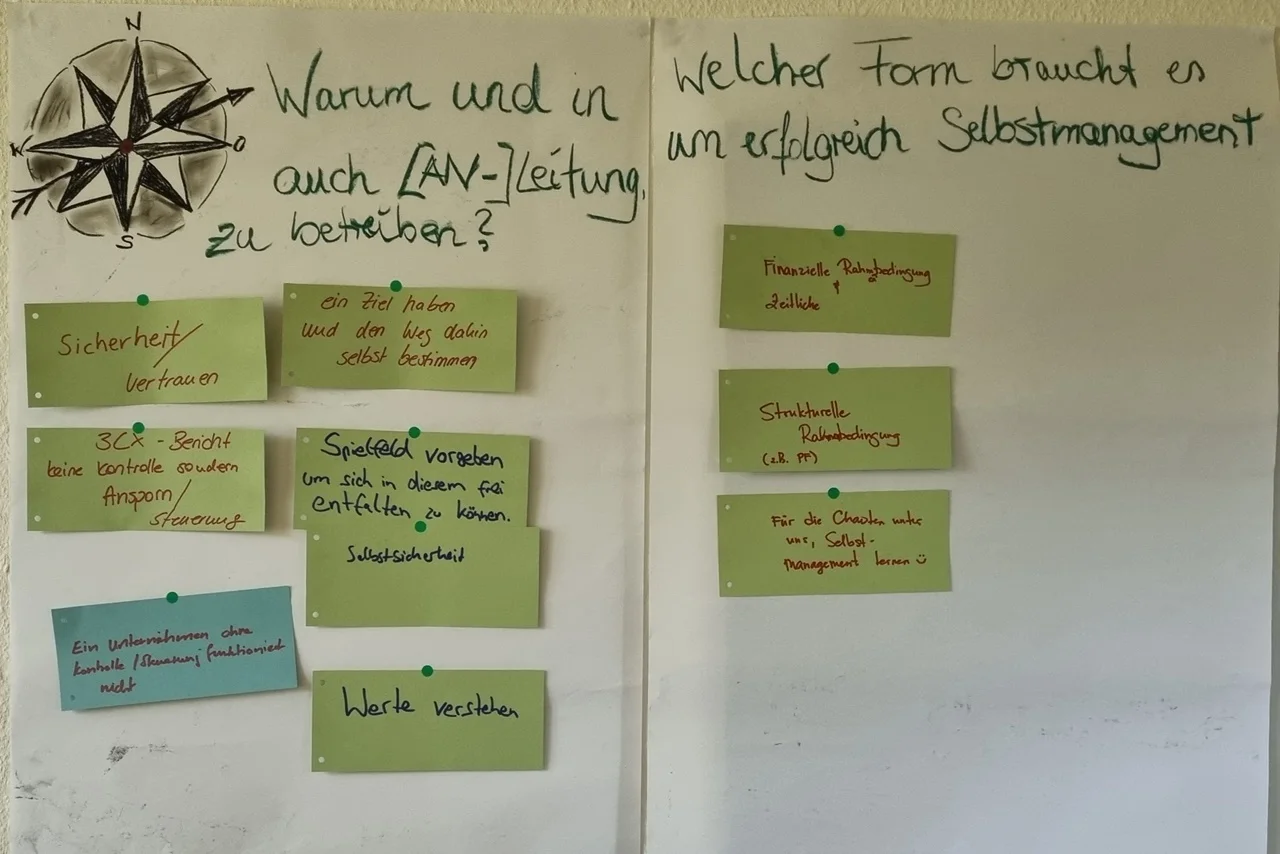 N
W
O
S
Warum und in welcher Form braucht es
auch [AN-]Leitung, um erfolgreich Selbstmanagement
zu betreiben?
Sicherheit/
Vertrauen
ein Ziel haben
und den Weg dahin
selbst bestimmen
3CX - Bericht
keine Kontrolle sondern
Ansporn/
Steuerung
Spielfeld vorgeben
um sich in diesem frei
entfalten zu können.
Selbstsicherheit
Ein Unternehmen ohne
Kontrolle/Steuerung funktioniert
nicht
Werte verstehen
Finanzielle Rahmbedingung
&
Zeitliche
Strukturelle
Rahmbedingung
(z.B. PF)
Für die Chaoten unter
uns, Selbst-
management lernen ☺